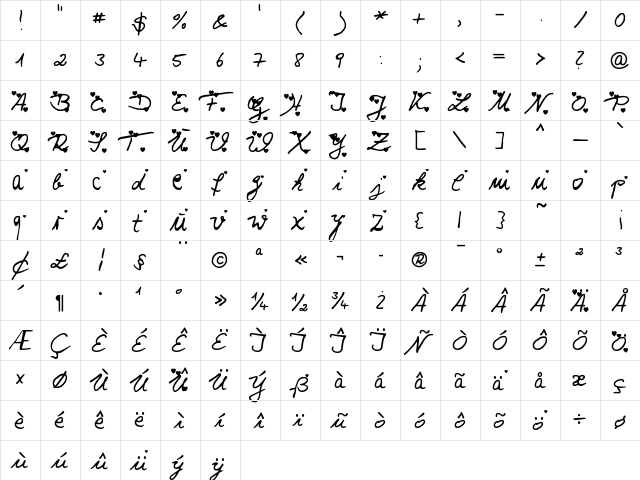 ! " # $ % & ' ( ) * + , - . / 0
1 2 3 4 5 6 7 8 9 : ; < = > ? @
A B C D E F G H I J K L M N O P
Q R S T U V W X Y Z [ \ ] ^ _ `
a b c d e f g h i j k l m n o p
q r s t u v w x y z { | } ~ ¡
¢ £ ¦ § ¨ © ª « ¬ - ® ¯ ° ± ² ³
´ ¶ · ¹ º » ¼ ½ ¾ ¿ À Á Â Ã Ä Å
Æ Ç È É Ê Ë Ì Í Î Ï Ñ Ò Ó Ô Õ Ö
× Ø Ù Ú Û Ü Ý ß à á â ã ä å æ ç
è é ê ë ì í î ï ñ ò ó ô õ ö ÷ ø
ù ú û ü ý ÿ